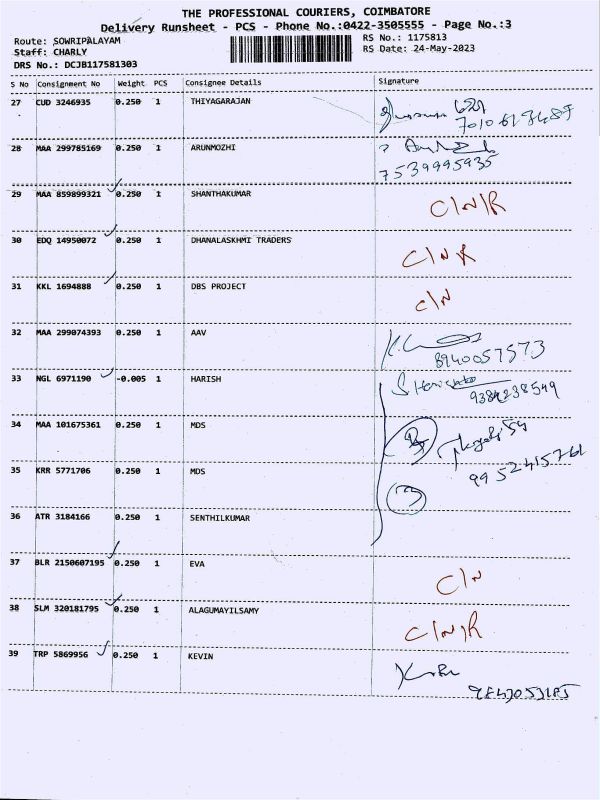 THE PROFESSIONAL COURIERS, COIMBATORE
Delivery Runsheet - PCS - Phone No.:0422-3505555 - Page No.:3
Route: SOWRIPALAYAM
Staff: CHARLY
DRS No.: DCJB117581303
RS No.: 1175813
RS Date: 24-May-2023
S No Consignment No Weight PCS Consignee Details Signature
27 CUD 3246935 0.250 1 THIYAGARAJAN
28 MAA 299785169 0.250 1 ARUNMOZHI
7539995935
29 MAA 859899321 0.250 1 SHANTHAKUMAR C/N/R
30 EDQ 14950072 0.250 1 DHANALASKHMI TRADERS C/N R
31 KKL 1694888 0.250 1 DBS PROJECT C/N
32 MAA 299074393 0.250 1 AAV
8940057573
33 NGL 6971190 -0.005 1 HARISH
9384238549
34 MAA 101675361 0.250 1 MDS
35 KRR 5771706 0.250 1 MDS
9952415761
36 ATR 3184166 0.250 1 SENTHILKUMAR
37 BLR 2150607195 0.250 1 EVA C/N
38 SLM 320181795 0.250 1 ALAGUMAYILSAMY C/N/R
39 TRP 5869956 0.250 1 KEVIN